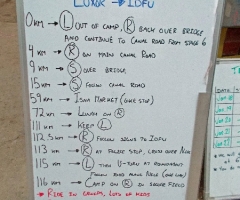 LUXOR → IDFU
0KM → L OUT OF CAMP, R BACK OVER BRIDGE
AND CONTINUE TO CANAL ROAD FROM STAGE 6
4 KM → R ON MAIN CANAL ROAD
9 KM → S OVER BRIDGE
15 KM → S FOLLOW CANAL ROAD
59 KM → ISNA MARKET (ONE SIDE)
72 KM → LUNCH ON R
111 KM → KEEP L
112.5 KM → R FOLLOW SIGNS TO IDFU
113 KM → R AT POLICE STOP, LEADS OVER NILE
115 KM → L THEN U-TURN AT ROUNDABOUT
FOLLOW ROAD ALONG NILE
116 KM → CAMP ON R IN SOCCER FIELD
* RIDE IN GROUPS, LOTS OF KIDS